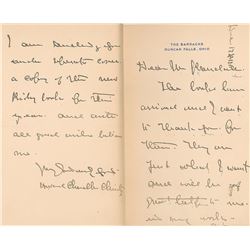 THE BARRACKS
DUNCAN FALLS, OHIO
Dear Mr
The books have
arrived and I want
to thank you for
them. They are
just what I want
and will be of
great help to me
in my work—
I am sending you
under separate cover
a copy of the new
Riley book for this
year. and with
all good wishes believe
me.
Very Sincerely yours
Howard Chandler Christy